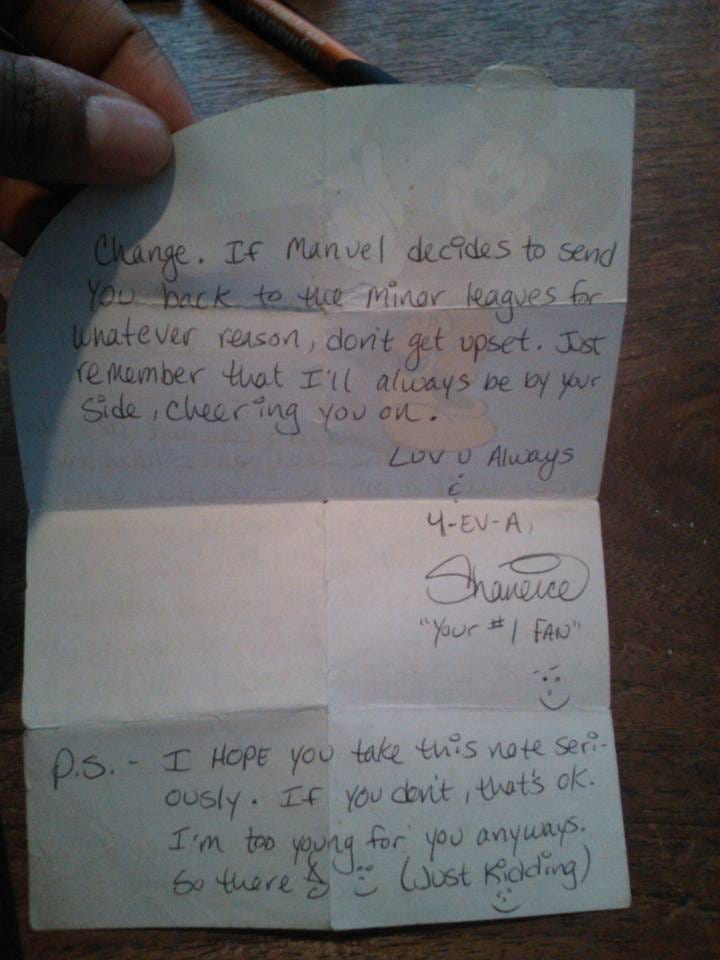 Change. If Manuel decides to send
you back to the minor leagues for
whatever reason, don't get upset. Just
remember that I'll always be by your
side, cheering you on.
LUV U Always
&
4-EV-A,
Shaneice
"Your #1 FAN"
P.S. - I HOPE you take this note seri-
ously. If you don't, that's ok.
I'm too young for you anyways.
So there (Just Kidding)